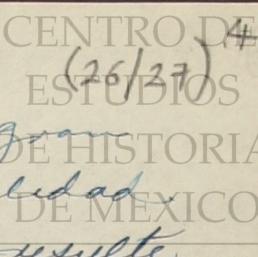 CENTRO DE
(26/27) 4
ESTUDIOS
gran
DE HISTORIA
ledad.
DE MEXICO
resulte